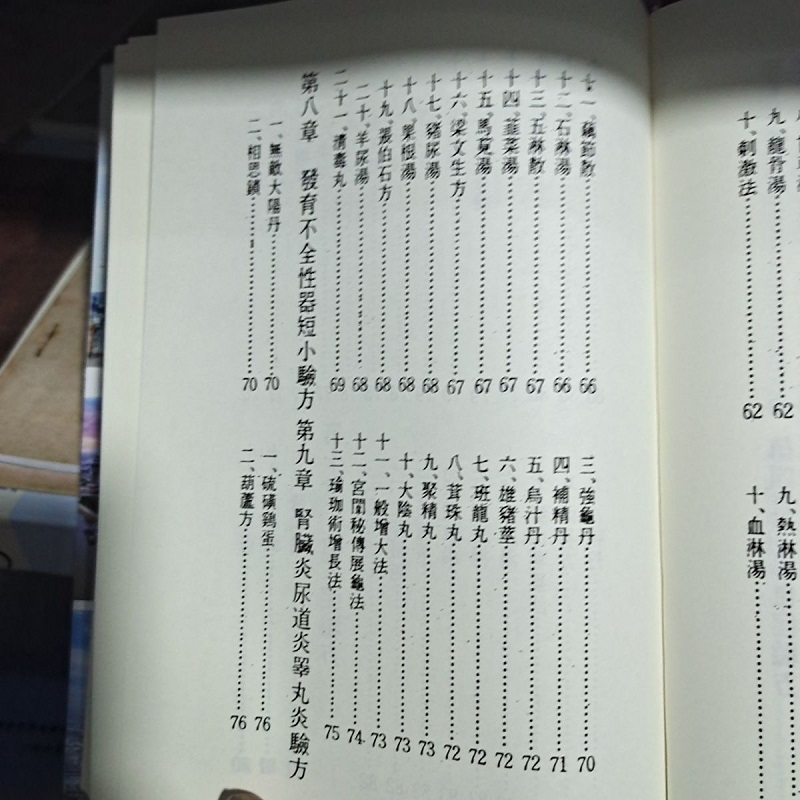 九、龍骨湯……62
十、刺激法……62
九、熱淋湯……
十、血淋湯……
十一、藕節散……66
十二、石淋湯……66
十三、五淋散……67
十四、韮菜湯……67
十五、馬莧湯……67
十六、梁文生方……67
十七、豬尿湯……68
十八、果根湯……68
十九、張伯石方……68
二十、羊尿湯……68
二十一、清毒丸……69
第八章 發育不全性器短小驗方
一、無敵大陽丹……70
二、相思鎖……70
三、強龜丹……70
四、補精丹……71
五、烏汁丹……72
六、雄豬莖……72
七、班龍丸……72
八、茸珠丸……72
九、聚精丸……73
十、大陰丸……73
十一、一般增大法……73
十二、宮闈秘傳展龜法……74
十三、瑜珈術增長法……75
第九章 腎臟炎尿道炎睪丸炎驗方
一、硫磺鷄蛋……76
二、葫蘆方……76